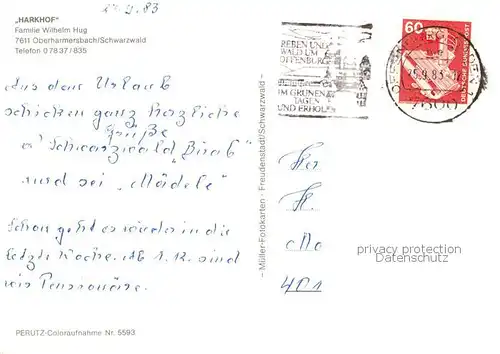 24.9.83
„HARKHOF"
Familie Wilhelm Hug
7611 Oberharmersbach/Schwarzwald
Telefon 07837/835
Aus dem Urlaub
schicken ganz herzliche
Grüße
„Schwarzwald „
und sei „Mädele"
Schon geht es wieder in die
letzte Woche. Ab 1.12. sind
wir Pensionäre.
PERUTZ-Coloraufnahme Nr. 5593
– Müller-Fotokarten - Freudenstadt/Schwarzwald –
REBEN UND
WALD UM
OFFENBURG
IM GRÜNEN
TAGEN
UND ERHOLEN
60
DEUTSCHE BUNDESPOST
OFFENBURG
25.9.83
7600
privacy protection
Datenschutz